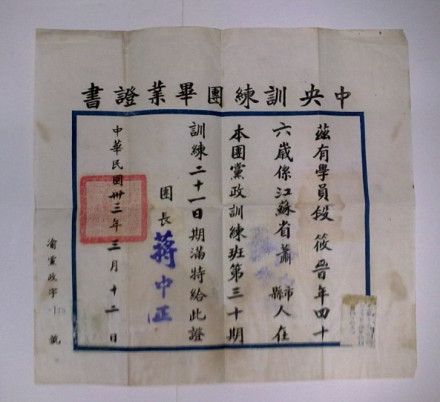 中央訓練團畢業證書
茲有學員段筱晉年四十
六歲係江蘇省蕭縣市人在
本團黨政訓練班第三十期
訓練二十一日期滿特給此證
團長 蔣中正
中華民國卅三年三月十二日
渝黨政字 號